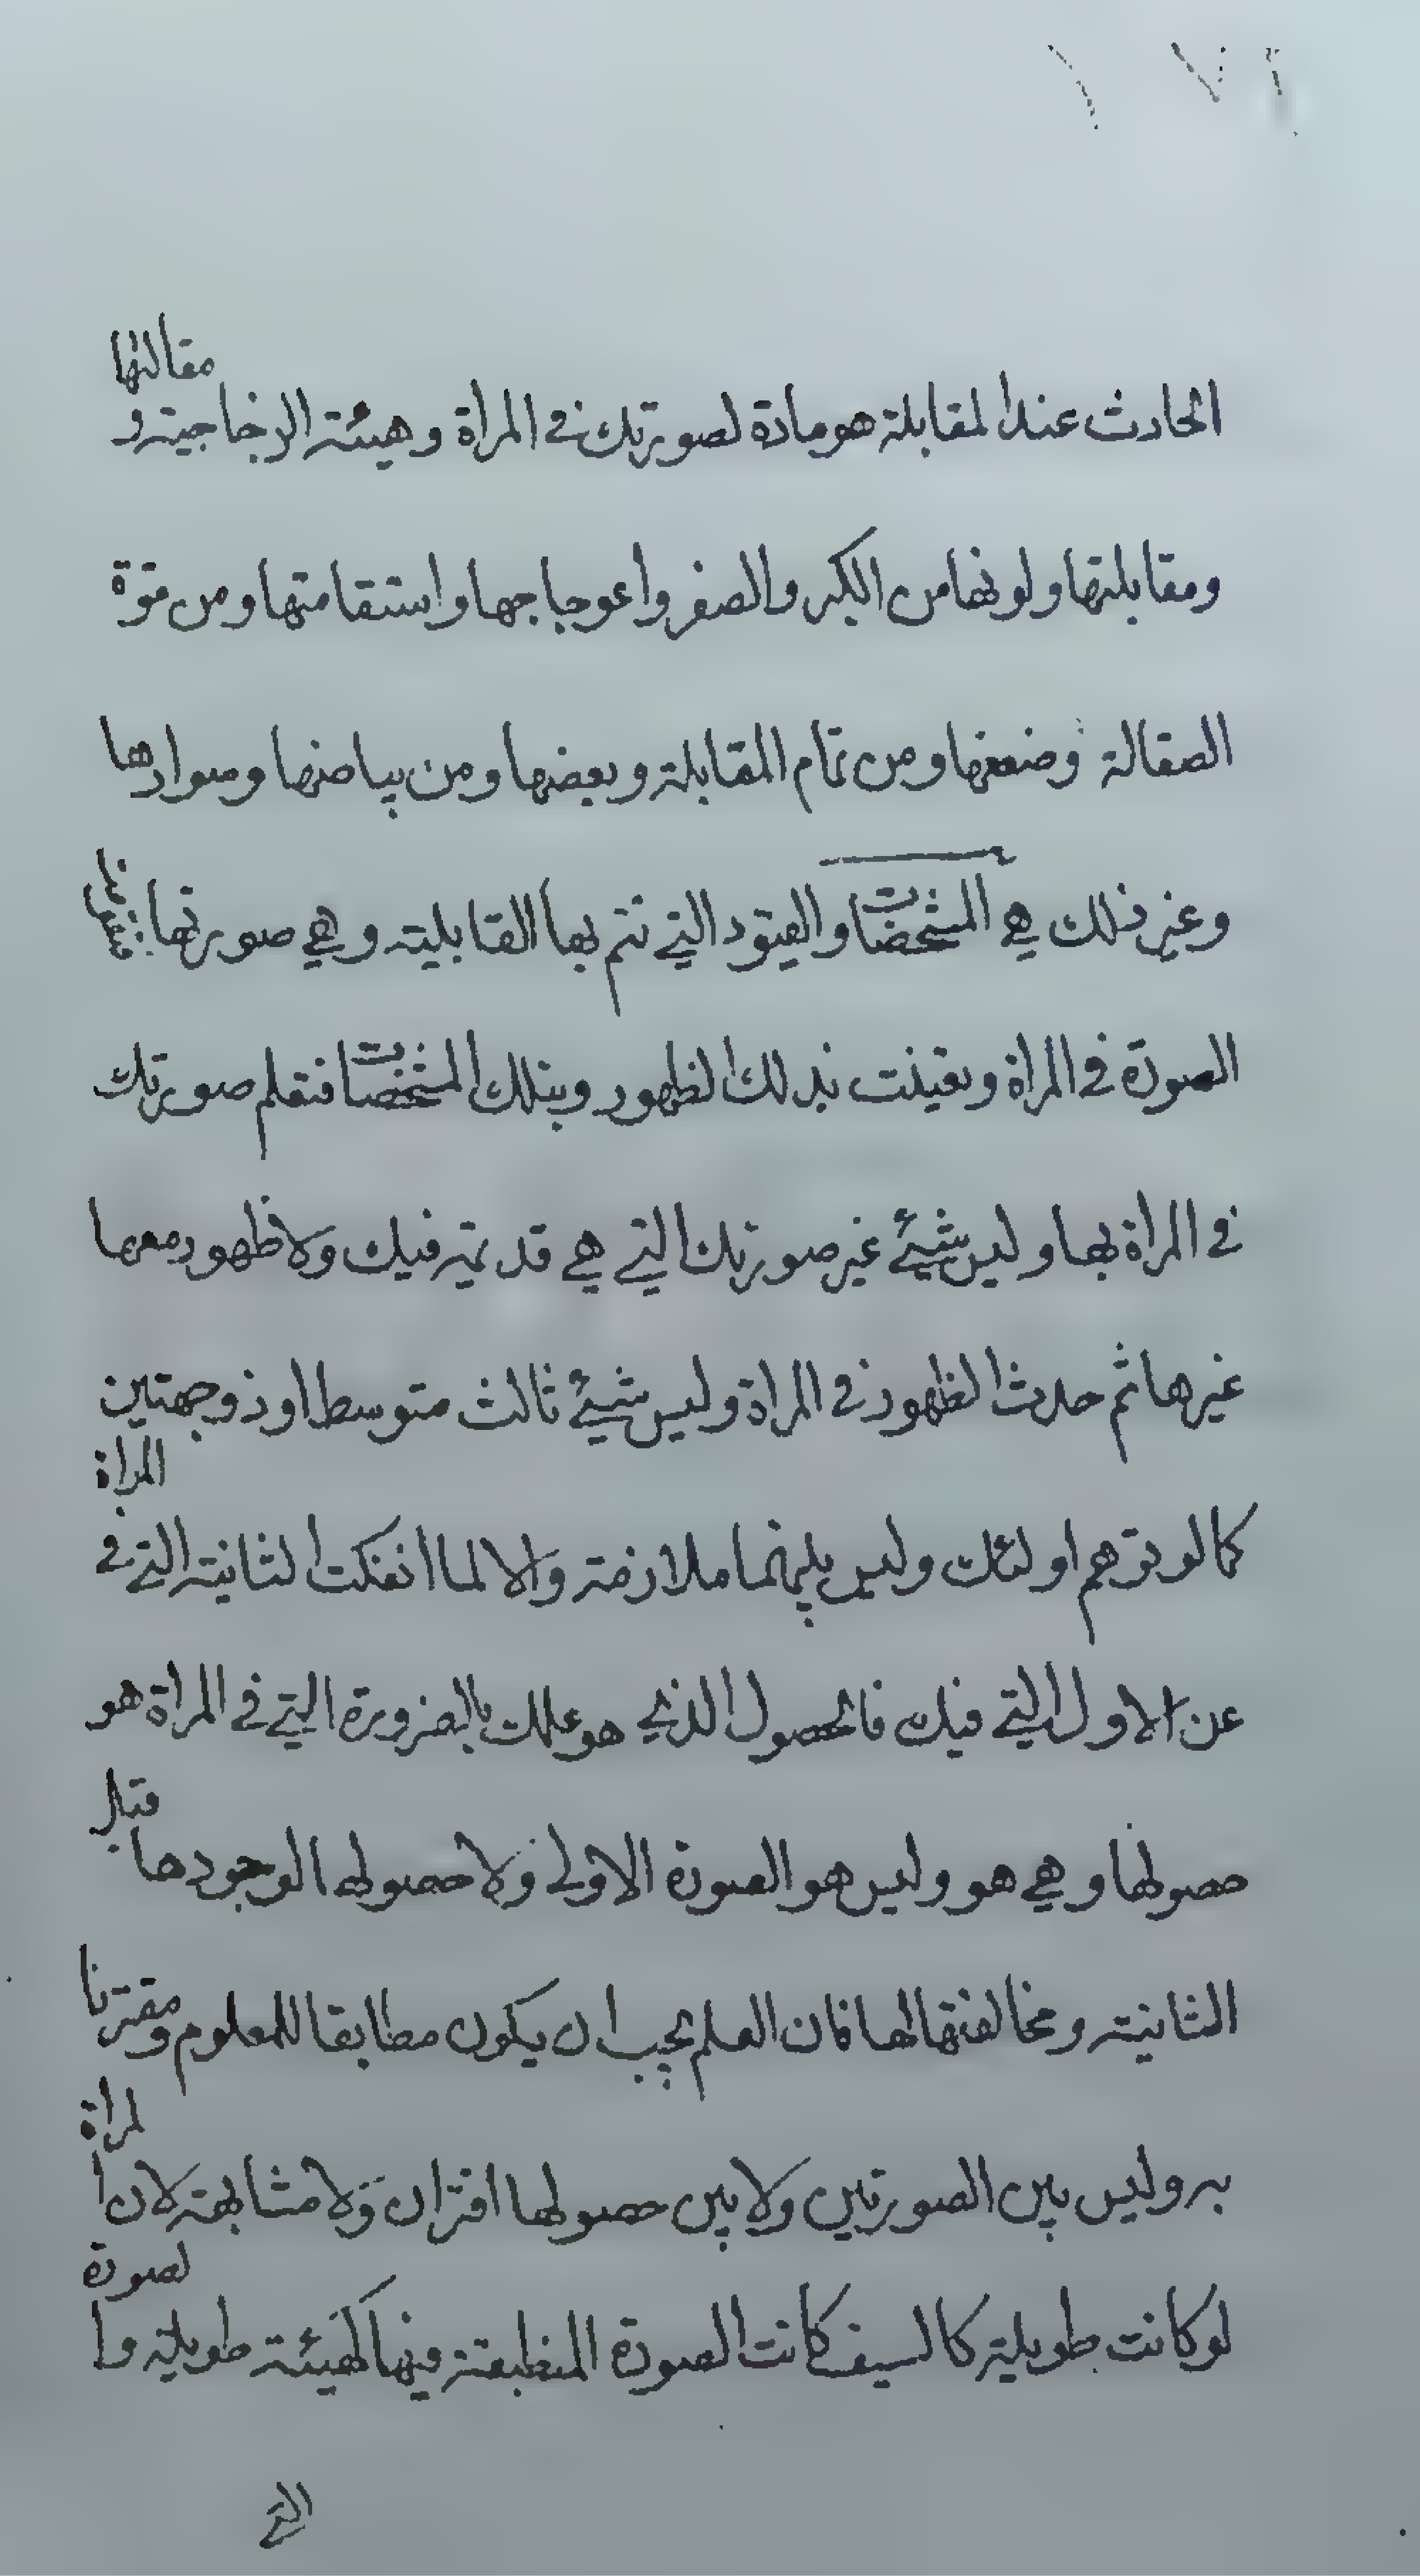 ١٧٦
الحادث عند المقابلة هو مادة لصورتك في المرآة وهيئة الزجاجية و مقالتها
ومقابلتها ولونها من الكبر والصغر واعوجاجها واستقامتها ومن قوة
الصقالة وضعفها ومن تمام المقابلة وبعضها ومن بياضها وسوادها
وغير ذلك هي المشخصات والقيود التي تتم بها القابلية وهي صورتها
الصورة في المراة وتعينت بذلك الظهور وبتلك المشخصات فتعلم صورتك
في المراة بها وليس شيئ غير صورتك التي هي قديمة فيك ولا ظهور معها
غيرها ثم حدث الظهور في المراة وليس شيئ ثالث متوسط او ذو جهتين
كما لو توهم اولئك وليس بينهما ملازمة والا لما انفكت الثانية التي في المراة
عن الاولى التي فيك فالحصول الذي هو علمك بالصورة التي في المراة هو
حصولها وهي هو وليس هو الصورة الاولى ولا حصولها لوجودها قبل
الثانية ومخالفتها لها فان العلم يجب ان يكون مطابقا للمعلوم ومقترنا
به وليس بين الصورتين ولا بين حصولها اقتران ولا مشابهة لان المراة
لو كانت طويلة كالسيف كانت الصورة المنطبعة فيها كهيئة طويلة والصورة
التي